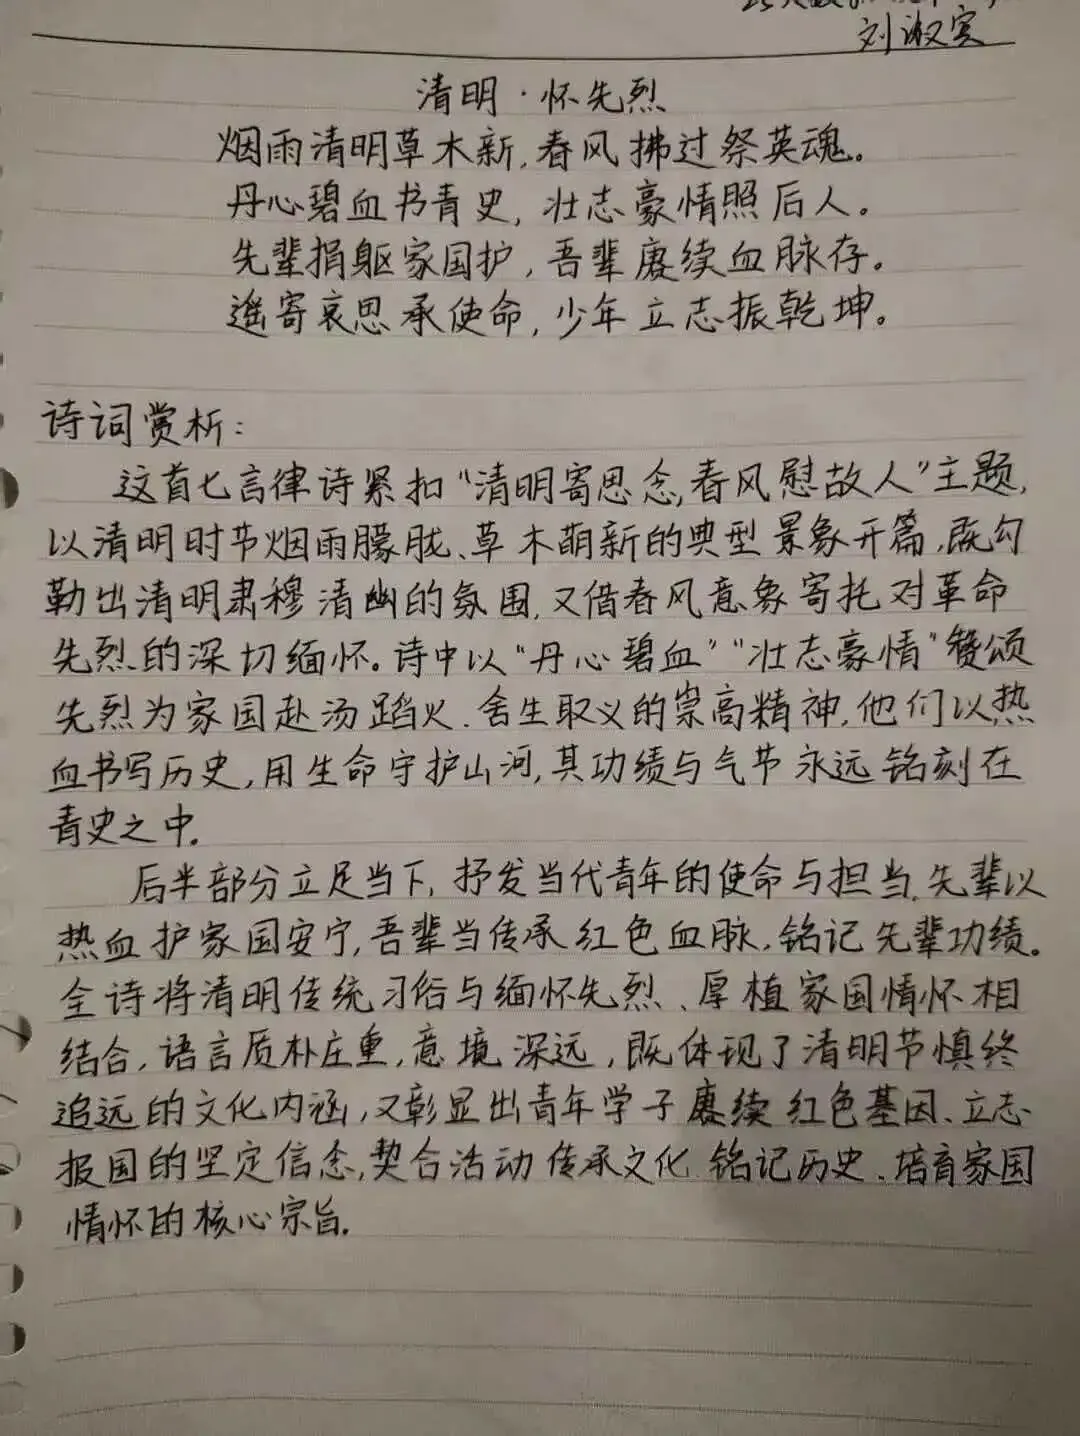 刘淑宾
清明·怀先烈
烟雨清明草木新,春风拂过祭英魂。
丹心碧血书青史,壮志豪情照后人。
先辈捐躯家国护,吾辈赓续血脉存。
遥寄哀思承使命,少年立志振乾坤。
诗词赏析:
这首七言律诗紧扣“清明寄思念,春风慰故人”主题,
以清明时节烟雨朦胧、草木萌新的典型景象开篇,既勾
勒出清明肃穆清幽的氛围,又借春风意象寄托对革命
先烈的深切缅怀。诗中以“丹心碧血”“壮志豪情”赞颂
先烈为家国赴汤蹈火、舍生取义的崇高精神,他们以热
血书写历史,用生命守护山河,其功绩与气节永远铭刻在
青史之中。
后半部分立足当下,抒发当代青年的使命与担当,先辈以
热血护家国安宁,吾辈当传承红色血脉,铭记先辈功绩。
全诗将清明传统习俗与缅怀先烈、厚植家国情怀相
结合,语言质朴庄重,意境深远,既体现了清明节慎终
追远的文化内涵,又彰显出青年学子赓续红色基因、立志
报国的坚定信念,契合活动传承文化 铭记历史、培育家国
情怀的核心宗旨.